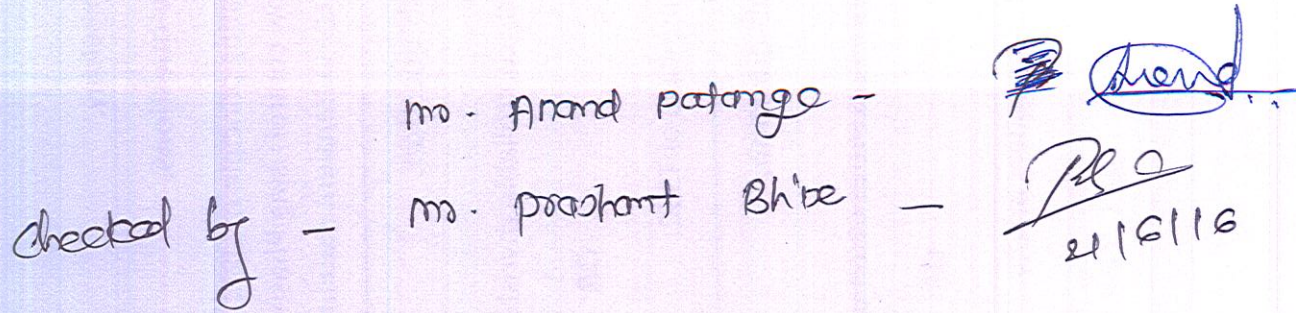 mr. Anand patange -
checked by - mr. prashant Bhise -
21/6/16